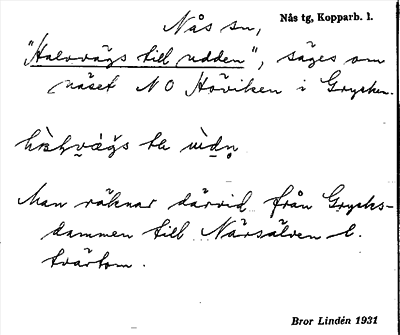 Nås sn, Nås tg, Kopparb. l.
"Halvvägs till udden", säges om
näset NO Höviken i Grycken.
Man räknar därvid från Grycks-
dammen till Närsälven l.
tvärtom.
Bror Lindén 1931